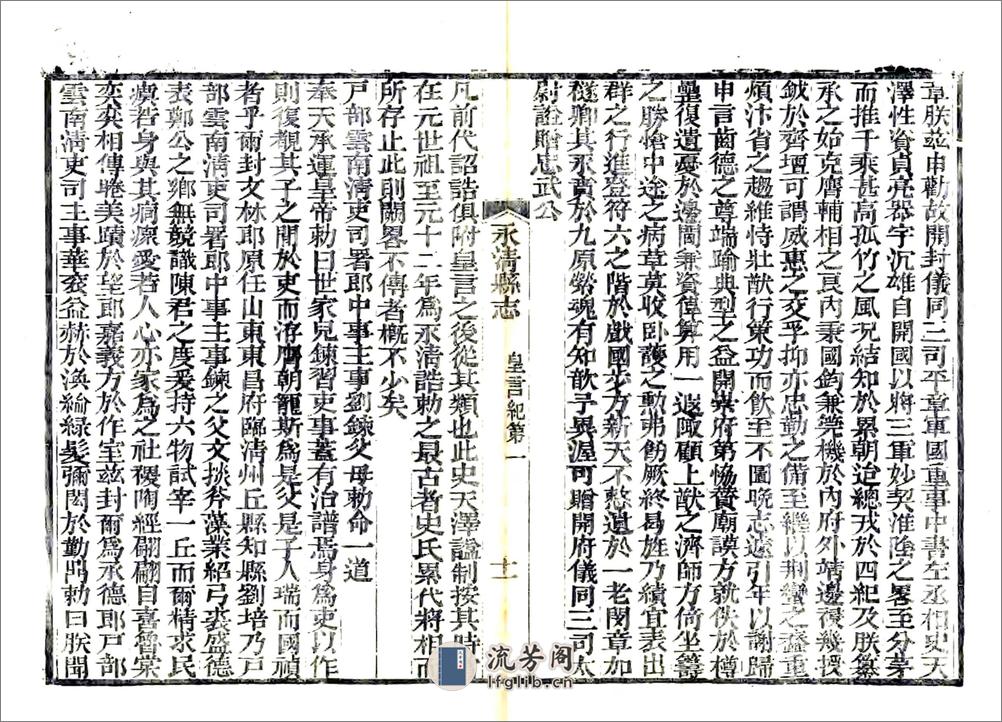 章朕茲申勸故開封儀同三司平章軍國重事中書左丞相史天
澤性資貞亮器宇沉雄自開國以將三軍妙契淮陰之畧至分茅
而推千乘甚高孤竹之風況結知於累朝迨總戎於四紀及朕纂
承之始克膺輔相之良內秉國鈞兼筦機於內府外靖邊
鉞於齊壇可謂威惠之交孚抑亦忠勤之備至
頌汴省之趨維恃壯猷行策功而飲至不圖晩志遠引年以謝歸
申言齒德之尊端踰典型之益開
復遺憂於邊閫兼資偉算用一遐陬顧上猷之濟師方倚坐籌
之勝愴中途之病章莫收卧護之勳弗飭厥終曷旌乃績宜表出
群之行進登符六之階於戲國步方新天不憖遺於一老閔章加
襚卿其永賁於九原勞魂有知歆予異渥可贈開府儀同三司太
尉諡贈忠武公
永淸縣志
皇言紀第一
十一
凡前代詔誥俱附皇言之後從其類也此史天澤諡制按其時
在元世祖至元十二年爲永淸誥勅之最古者史氏累代將相而
所存止此則闕畧不傳者槪不少矣
戶部雲南淸吏司署郎中事主事劉鍊父母勅命一道
奉天承運皇帝勅曰世家兒鍊習吏事蓋有治譜焉身爲吏以作
則復觀其子之閒於吏而洊膺朝寵斯爲是父是子人瑞而國禎
者乎爾封文林郎原任山東東昌府臨淸州丘縣知縣劉培乃戶
部雲南淸吏司署郎中事主事鍊之父文掞斧藻業紹弓裘盛德
表鄭公之鄉無競識陳君之度爰持六物試宰一丘而爾精求民
瘼若身與其痌瘝愛若人心亦家爲之社稷陶經翩翩自喜魯棠
奕奕相傳埢美蹟於望郎嘉義方於作室茲封爾爲承德郎戶部
雲南淸吏司主事華衮益赫於渙綸綠髮彌閎於勤鼎勅曰朕聞
流芳阁
lfglib.cn